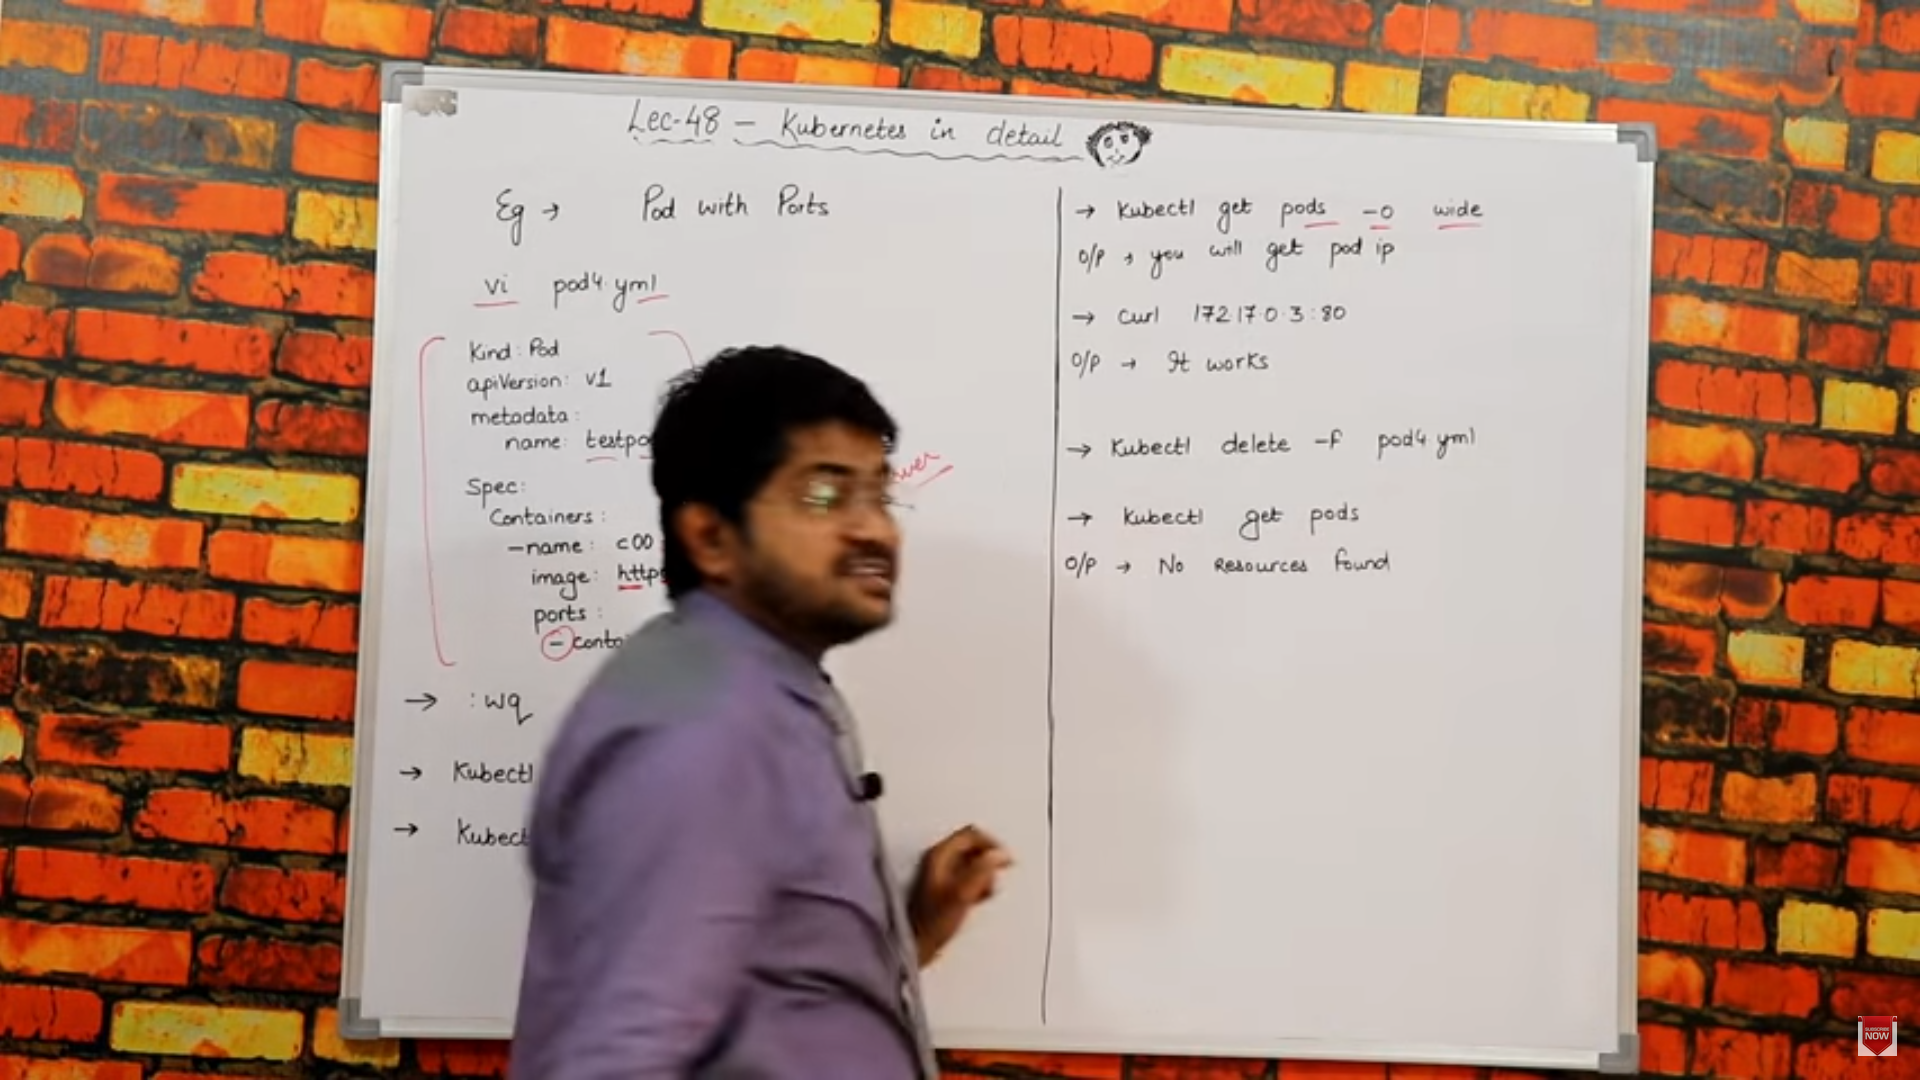 Lec-48 - Kubernetes in detail
Eg → Pod with Ports
vi pod4.yml
Kind: Pod
apiVersion: v1
metadata:
name: testpo
Spec:
Containers:
-name: c00
image: http
ports:
- conta
→ :wq
→ Kubectl
→ Kubect
→ Kubectl get pods -o wide
O/P → you will get pod ip
→ Curl 172.17.0.3:80
O/P → It works
→ Kubectl delete -f pod4.yml
→ Kubectl get pods
O/P → No Resources found
SUBSCRIBE
NOW